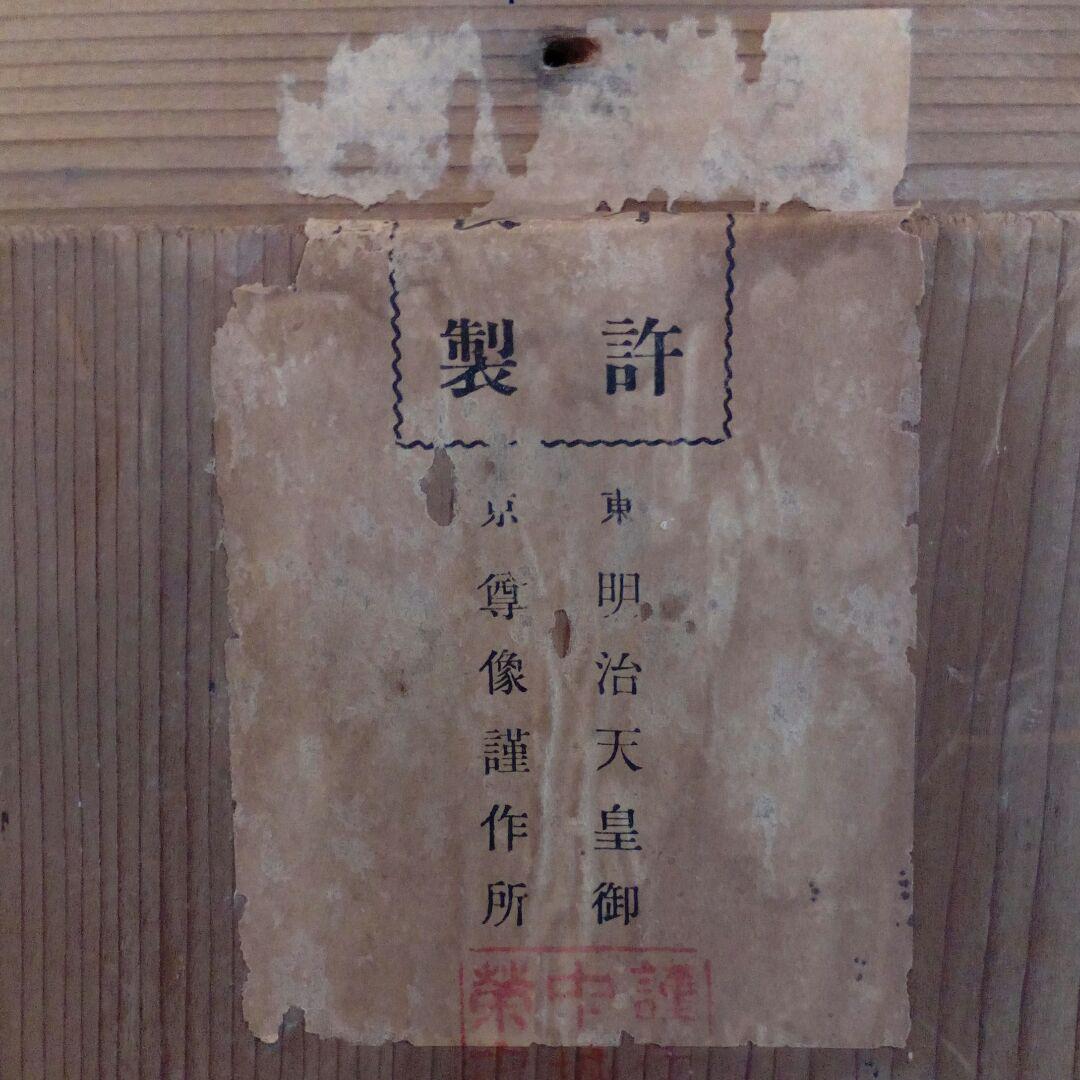 許
製
東京
明治天皇御
尊像謹作所
謹
中
榮